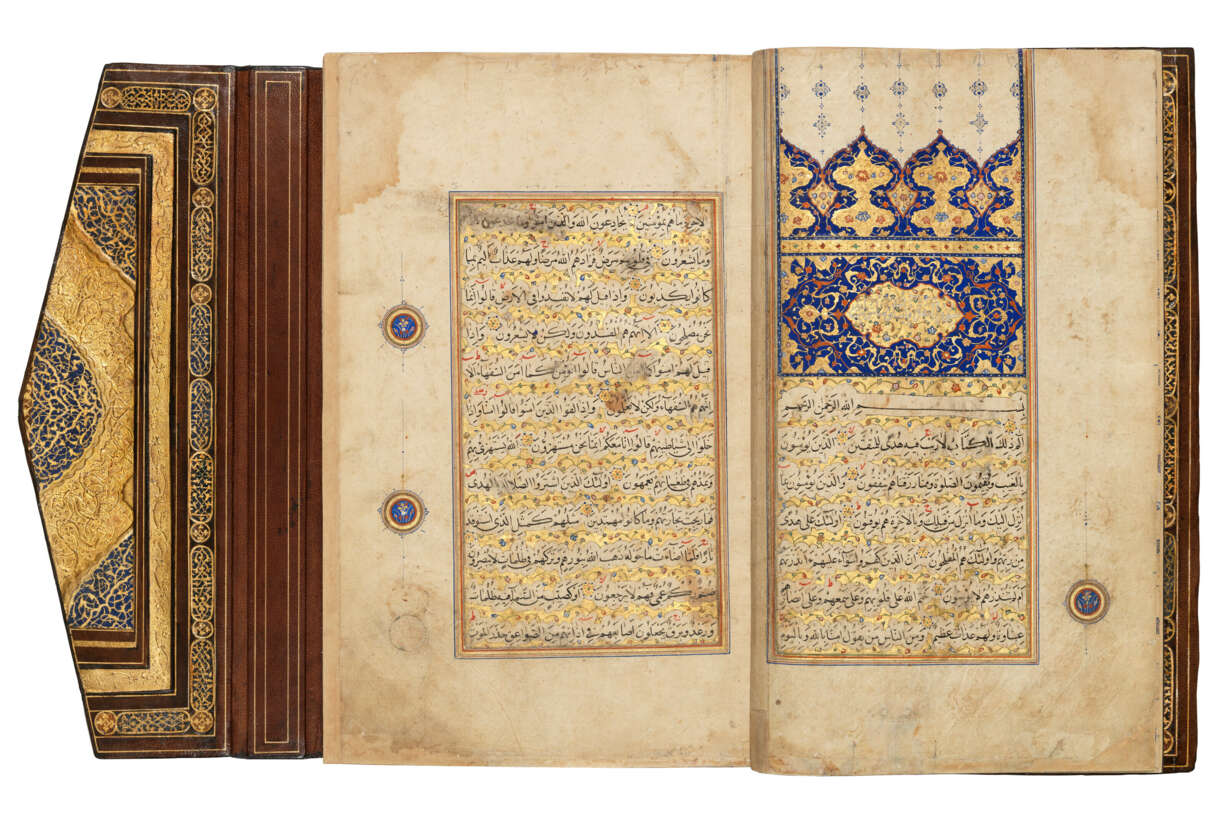 بسم الله الرحمن الرحيم
الم ذلك الكتاب لا ريب فيه هدى للمتقين الذين يؤمنون
بالغيب ويقيمون الصلوة ومما رزقناهم ينفقون والذين يؤمنون بما
انزل اليك وما انزل من قبلك وبالاخرة هم يوقنون اولئك على هدى
من ربهم واولئك هم المفلحون ان الذين كفروا سواء عليهم ءانذرتهم
ام لم تنذرهم لا يؤمنون ختم الله على قلوبهم وعلى سمعهم وعلى ابصارهم
غشاوة ولهم عذاب عظيم ومن الناس من يقول امنا بالله وباليوم
الاخر وما هم بمؤمنين يخادعون الله والذين امنوا وما يخدعون
وما يشعرون في قلوبهم مرض فزادهم الله مرضا ولهم عذاب اليم بما
كانوا يكذبون واذا قيل لهم لا تفسدوا في الارض قالوا انما
نحن مصلحون الا انهم هم المفسدون ولكن لا يشعرون واذا
قيل لهم امنوا كما امن الناس قالوا انؤمن كما امن السفهاء الا
انهم هم السفهاء ولكن لا يعلمون واذا لقوا الذين امنوا قالوا امنا واذا
خلوا الى شياطينهم قالوا انا معكم انما نحن مستهزؤن الله يستهزئ بهم
ويمدهم في طغيانهم يعمهون اولئك الذين اشتروا الضلالة بالهدى
فما ربحت تجارتهم وما كانوا مهتدين مثلهم كمثل الذي استوقد
نارا فلما اضاءت ما حوله ذهب الله بنورهم وتركهم في ظلمات لا يبصرون
صم بكم عمي فهم لا يرجعون او كصيب من السماء فيه ظلمات
ورعد وبرق يجعلون اصابعهم في اذانهم من الصواعق حذر الموت